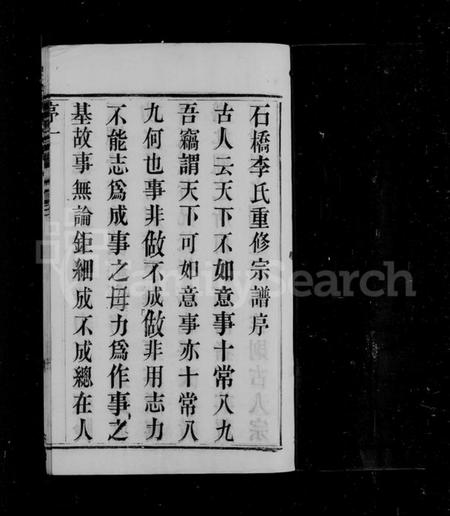 石橋李氏重修宗譜序
古人云天下不如意事十常八九
吾竊謂天下可如意事亦十常八
九何也事非做不成做非用志力
不能志爲成事之毋力爲作事之
基故事無論鉅細成不成總在人
序一
FamilySearch